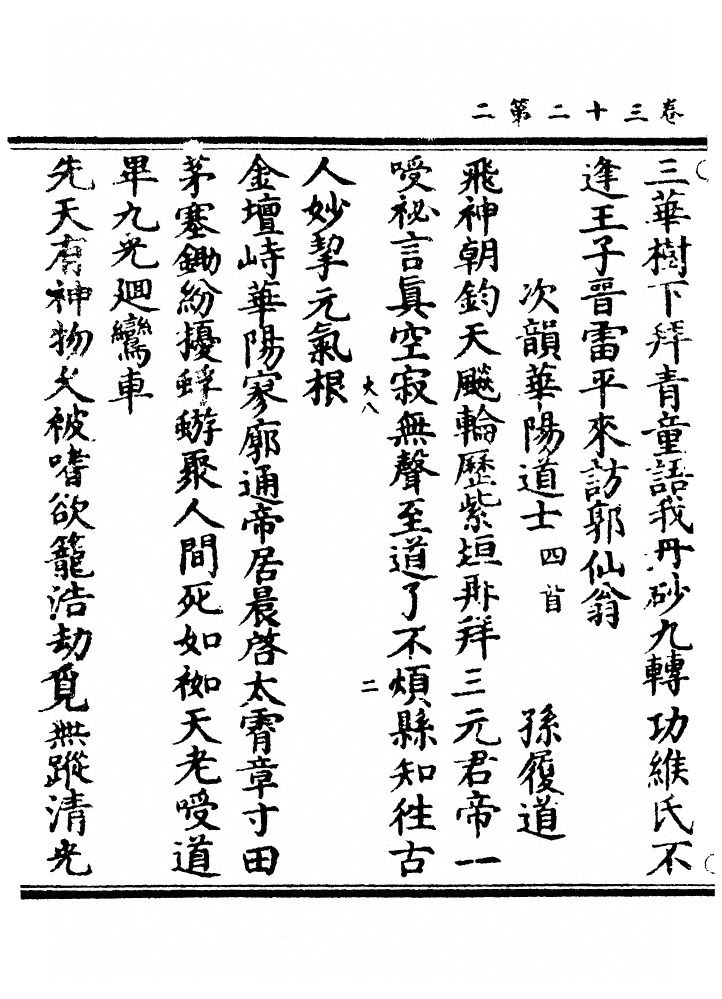 卷三十二第二
三華樹下拜青童語我丹砂九轉功緱氏不
逢王子晉雷平來訪郭仙翁
次韻華陽道士四首 孫履道
飛神朝鈞天飈輪歷紫垣再拜三元君帝一
嘤祕言眞空寂無聲至道了不煩縣知徃古
大八 二
人妙挈元氣根
金壇峙華陽寥廓通帝居晨啓太霄章寸田
茅塞鋤紛擾蜉蝣聚人間死如袽天老嘤道
畢九光廻鸞車
先天有神物久被嗜欲籠浩劫覓無蹤清光